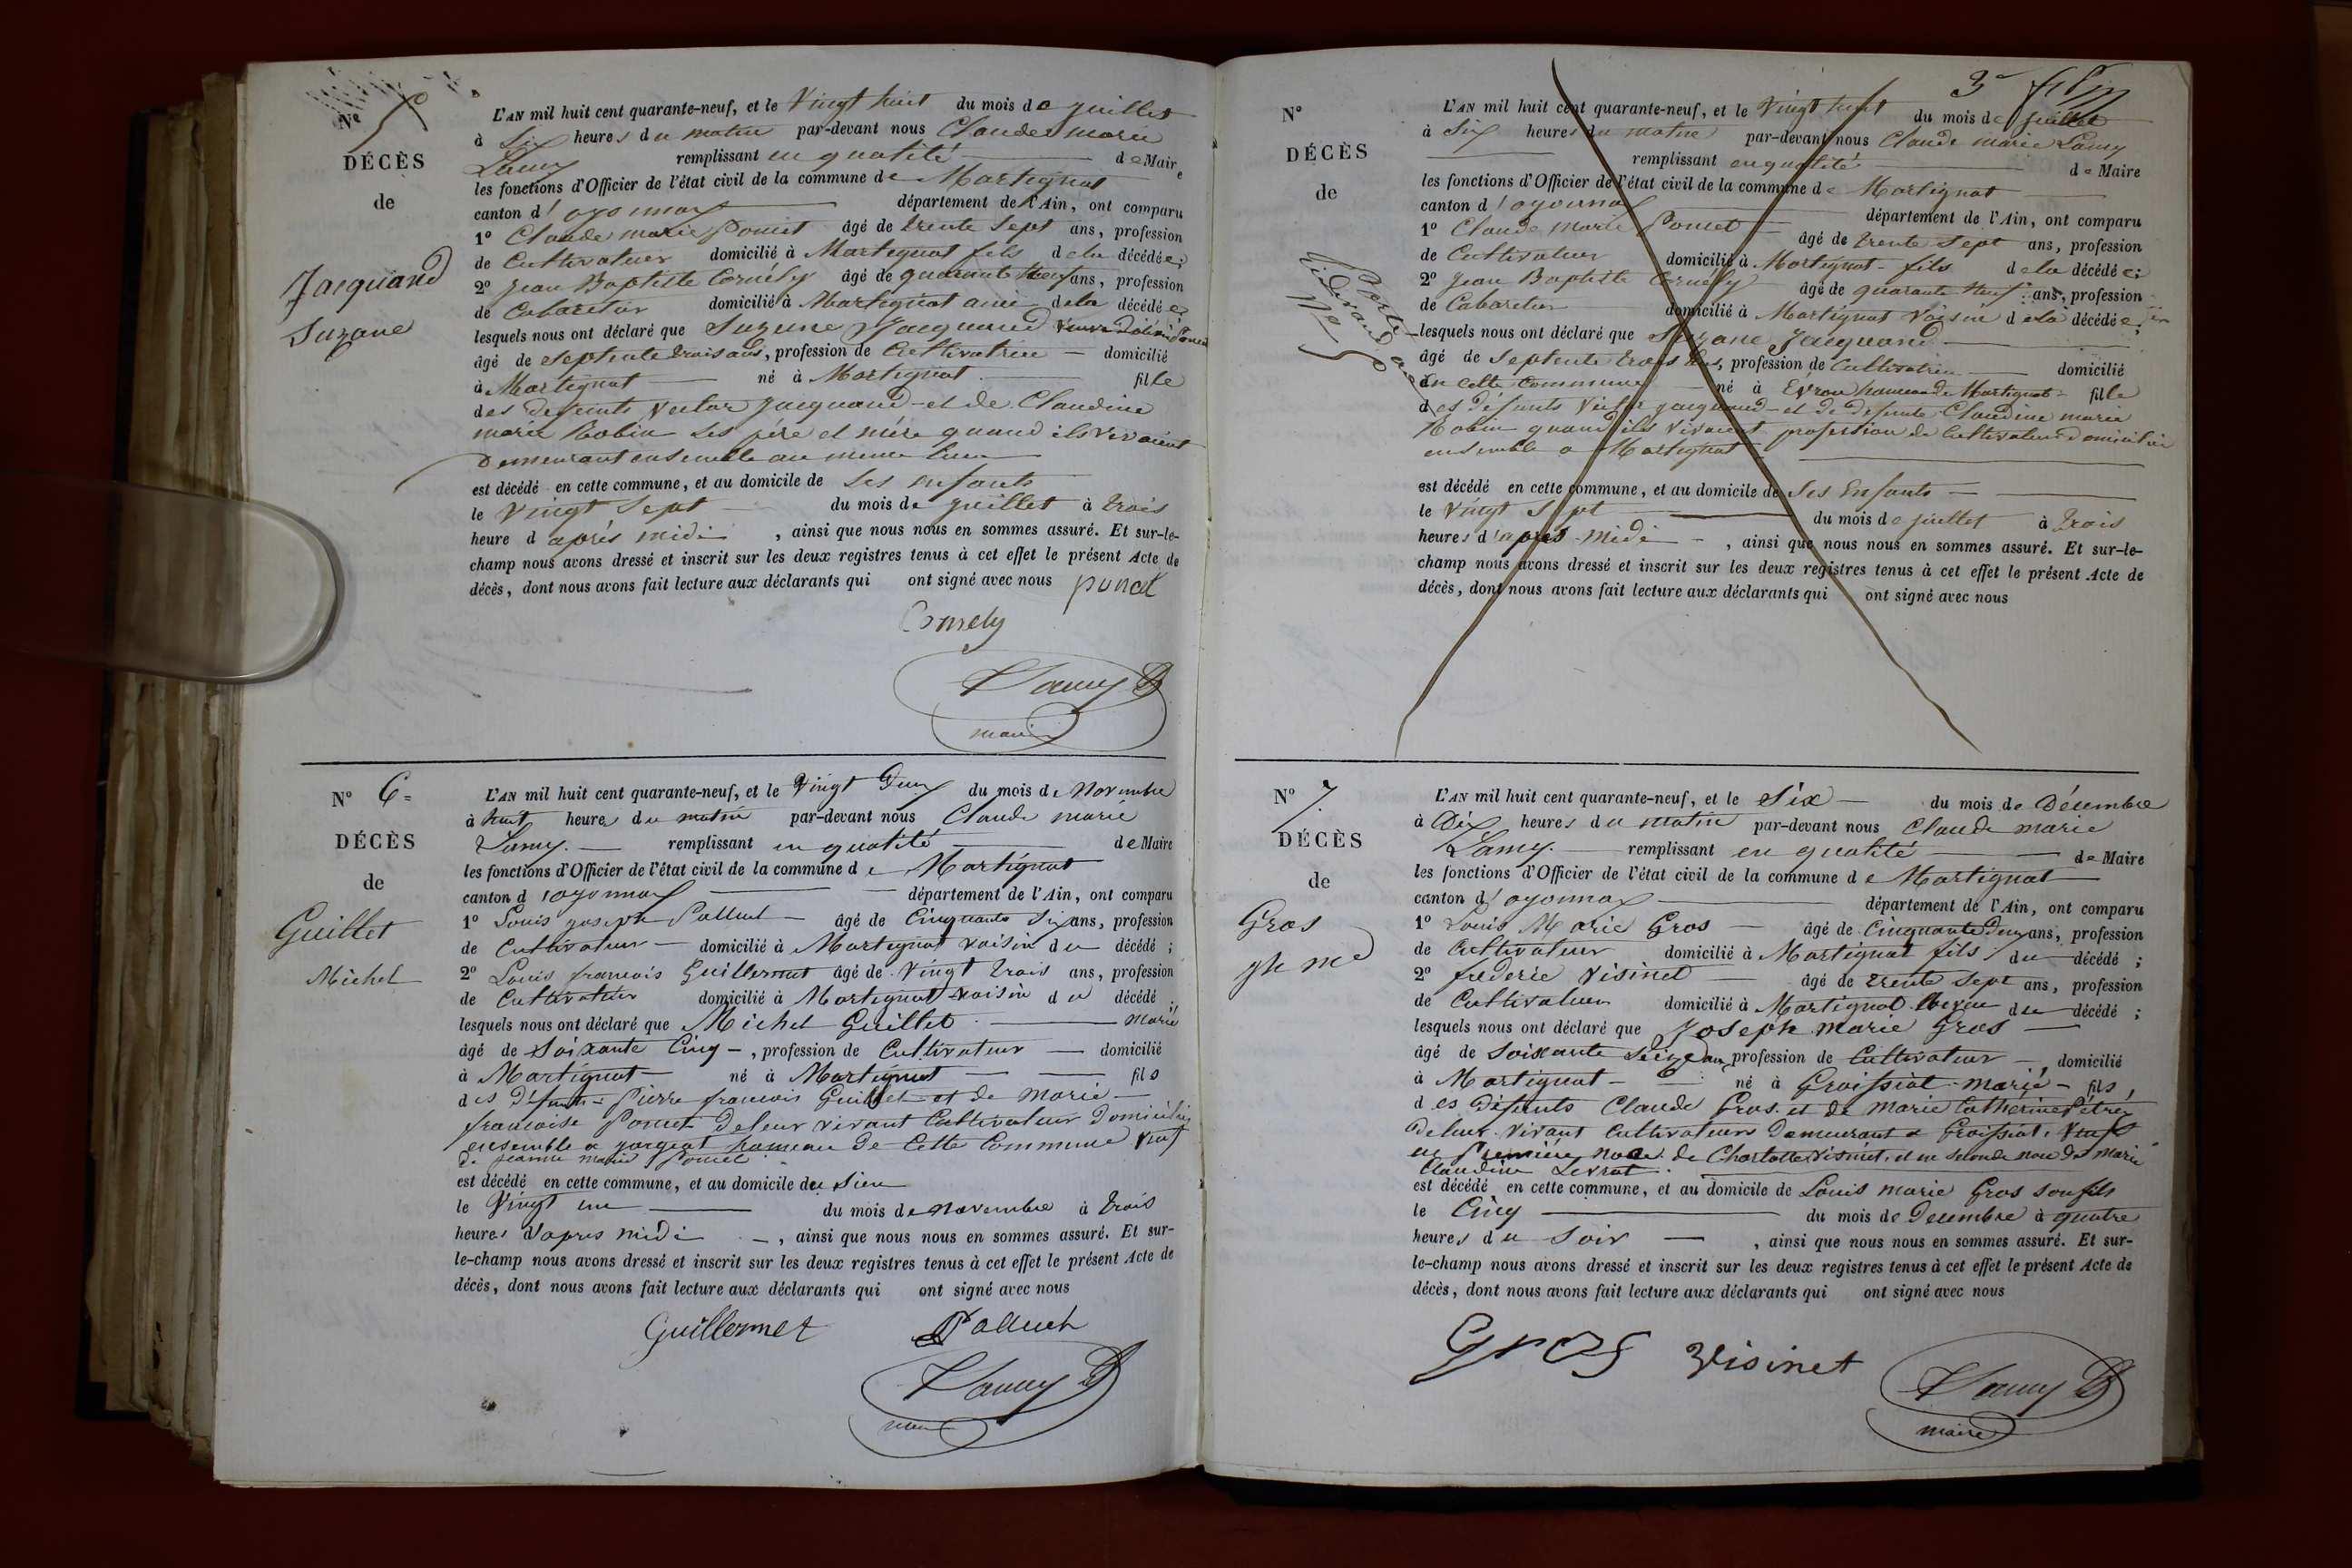 Nº 5
DÉCÈS
de
Jacquand
Suzane
L'AN mil huit cent quarante-neuf, et le Vingt huit du mois de juillet
à Six heures du matin par-devant nous Claude marie
Lamy remplissant en qualité de Maire
les fonctions d'Officier de l'état civil de la commune de Martignat
canton d'oyonnax département de l'Ain, ont comparu
1º Claude marie Poncet âgé de trente Sept ans, profession
de Cultivateur domicilié à Martignat fils de la décédée;
2º Jean Baptiste Cornély âgé de quarante neuf ans, profession
de Cabaretier domicilié à Martignat ami de la décédée;
lesquels nous ont déclaré que Suzane Jacquand veuve Poncet
âgé de septente trois ans, profession de Cultivatrice domicilié
à Martignat né à Martignat fille
des defunts Victor Jacquand et de Claudine
marie Robin ses père et mère quand ils vivaient
Demeurant ensemble au meme lieu
est décédé en cette commune, et au domicile de Ses enfants
le Vingt Sept du mois de juillet à trois
heure d'aprés midi, ainsi que nous nous en sommes assuré. Et sur-le-
champ nous avons dressé et inscrit sur les deux registres tenus à cet effet le présent Acte de
décès, dont nous avons fait lecture aux déclarants qui ont signé avec nous poncet
Cornely
Lamy
maire
Nº 6
DÉCÈS
de
Guillet
Michel
L'AN mil huit cent quarante-neuf, et le Vingt Deux du mois de Novembre
à huit heures du matin par-devant nous Claude marie
Lamy remplissant en qualité de Maire
les fonctions d'Officier de l'état civil de la commune de Martignat
canton d'oyonnax département de l'Ain, ont comparu
1º Louis joseph âgé de Cinquante Six ans, profession
de Cultivateur domicilié à Martignat voisin du décédé;
2º Louis francois Guillermet âgé de Vingt trois ans, profession
de Cultivateur domicilié à Martignat voisin du décédé
lesquels nous ont déclaré que Michel Guillet marié
âgé de Soixante Cinq, profession de Cultivateur domicilié
à Martignat né à Martignat fils
des défunts Pierre francois Guillet et de Marie
francoise Poncet de leur vivant Cultivateur Domiciliés
ensemble a hameau de Cette Commune
de jeanne marie Poncet
est décédé en cette commune, et au domicile du Sien
le Vingt un du mois de novembre à trois
heures d'apres midi, ainsi que nous nous en sommes assuré. Et sur-
le-champ nous avons dressé et inscrit sur les deux registres tenus à cet effet le présent Acte de
décès, dont nous avons fait lecture aux déclarants qui ont signé avec nous
Guillermet
Lamy
3e
Nº
DÉCÈS
de
Porté
Nº 5
L'AN mil huit cent quarante-neuf, et le Vingt huit du mois de juillet
à Six heures du matin par-devant nous Claude marie Lamy
remplissant en qualité de Maire
les fonctions d'Officier de l'état civil de la commune de Martignat
canton d'oyonnax département de l'Ain, ont comparu
1º Claude Marie Poncet âgé de trente Sept ans, profession
de Cultivateur domicilié à Martignat fils de la décédée;
2º Jean Baptiste Cornély âgé de quarante Neuf ans, profession
de Cabaretier domicilié à Martignat Voisin de la décédée;
lesquels nous ont déclaré que Suzane Jacquand
âgé de Septente trois ans, profession de Cultivatrice domicilié
en Cette Commune né à Evron hameau de Martignat fille
des défunts Victor jacquand et de defunte Claudine marie
Robin quand ils vivaient profession de Cultivateur domiciliés
ensemble a Martignat
est décédé en cette commune, et au domicile de Ses Enfants
le Vingt Sept du mois de juillet à trois
heures d'après Midi, ainsi que nous nous en sommes assuré. Et sur-le-
champ nous avons dressé et inscrit sur les deux registres tenus à cet effet le présent Acte de
décès, dont nous avons fait lecture aux déclarants qui ont signé avec nous
Nº 7
DÉCÈS
de
Gros
jh me
L'AN mil huit cent quarante-neuf, et le Six du mois de Décembre
à Dix heures du matin par-devant nous Claude marie
Lamy remplissant en qualité de Maire
les fonctions d'Officier de l'état civil de la commune de Martignat
canton d'oyonnax département de l'Ain, ont comparu
1º Louis Marie Gros âgé de Cinquante Deux ans, profession
de Cultivateur domicilié à Martignat fils du décédé;
2º frederic Visinet âgé de trente Sept ans, profession
de Cultivateur domicilié à Martignat du décédé;
lesquels nous ont déclaré que Joseph marie Gros
âgé de soixante Seize ans profession de Cultivateur, domicilié
à Martignat né à Groissiat marié fils
des défunts Claude Gros et de Marie Catherine
De leur Vivant Cultivateurs Demeurant a Groissiat, Veuf
en Première noce de Charlotte Visinet, et en seconde noce de Marie
Claudine Levrat
est décédé en cette commune, et au domicile de Louis marie Gros son fils
le Cinq du mois de Decembre à quatre
heures du Soir, ainsi que nous nous en sommes assuré. Et sur-
le-champ nous avons dressé et inscrit sur les deux registres tenus à cet effet le présent Acte de
décès, dont nous avons fait lecture aux déclarants qui ont signé avec nous
Gros Visinet
Lamy
maire